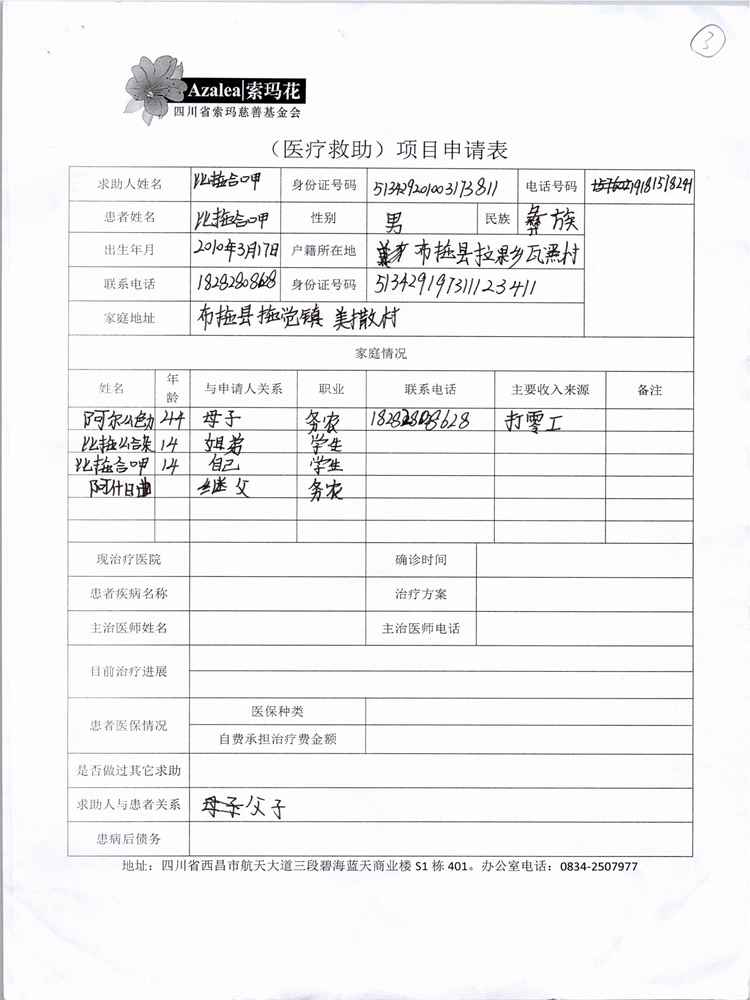 3
Azalea|索玛花
四川省索玛慈善基金会
（医疗救助）项目申请表
求助人姓名 比拉合呷 身份证号码 513429201003173811 电话号码 19181578291
患者姓名 比拉合呷 性别 男 民族 彝族
出生年月 2010年3月17日 户籍所在地 布拖县拉果乡瓦黑村
联系电话 18282808628 身份证号码 513429197311123411
家庭地址 布拖县拖觉镇 美撒村
家庭情况
姓名 年龄 与申请人关系 职业 联系电话 主要收入来源 备注
阿尔么 44 母子 务农 18282808628 打零工
比拉么 14 姐弟 学生
比拉合呷 14 自己 学生
阿什日曲 继父 务农
现治疗医院 确诊时间
患者疾病名称 治疗方案
主治医师姓名 主治医师电话
目前治疗进展
患者医保情况 医保种类
自费承担治疗费金额
是否做过其它求助
求助人与患者关系 母子 父子
患病后债务
地址：四川省西昌市航天大道三段碧海蓝天商业楼 S1 栋 401。办公室电话：0834-2507977